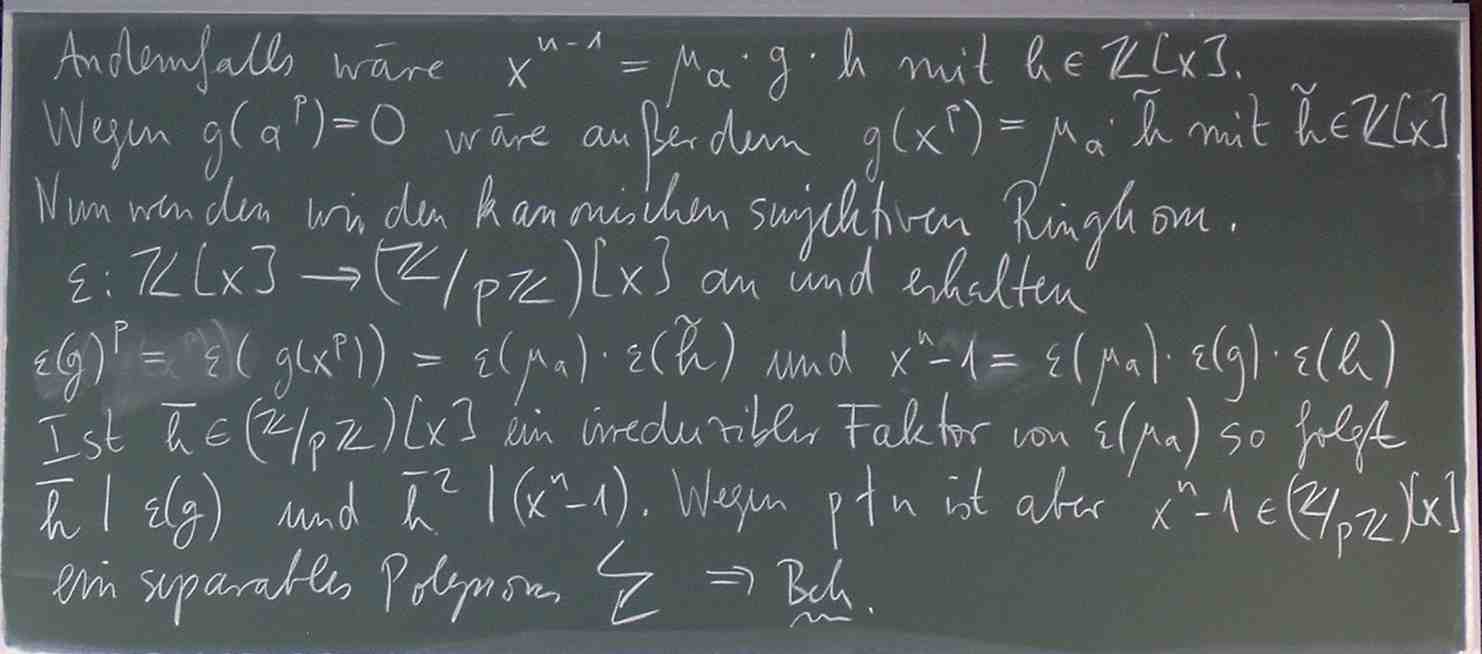 Andernfalls wäre x^{n-1} = μ_a · g · h mit h ∈ ℤ[x].
Wegen g(a^p) = 0 wäre außerdem g(x^p) = μ_a · h̃ mit h̃ ∈ ℤ[x]
Nun wenden wir den kanonischen surjektiven Ringhom.
ε: ℤ[x] → (ℤ/pℤ)[x] an und erhalten
ε(g)^p = ε(g(x^p)) = ε(μ_a) · ε(h̃) und x^n-1 = ε(μ_a) · ε(g) · ε(h)
Ist h̄ ∈ (ℤ/pℤ)[x] ein irreduzibler Faktor von ε(μ_a) so folgt
h̄ | ε(g) und h̄² | (x^n-1). Wegen p ∤ n ist aber x^n-1 ∈ (ℤ/pℤ)[x]
ein separables Polynom ↯ ⇒ Beh.